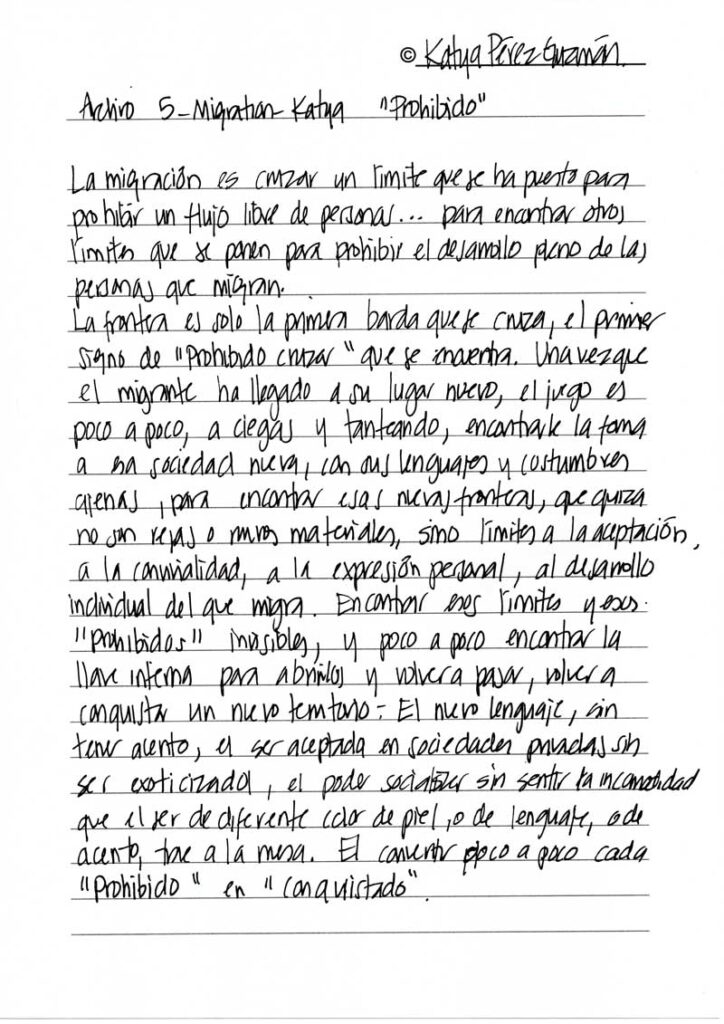 © Katya Pérez Guzmán.
Archivo 5-Migration-Katya "Prohibido"
La migración es cruzar un límite que se ha puesto para
prohibir un flujo libre de personas... para encontrar otros
límites que se ponen para prohibir el desarrollo pleno de las
personas que migran.
La frontera es solo la primera barda que se cruza, el primer
signo de "Prohibido cruzar" que se encuentra. Una vez que
el migrante ha llegado a su lugar nuevo, el juego es
poco a poco, a ciegas y tanteando, encontrarle la forma
a esa sociedad nueva, con sus lenguajes y costumbres
ajenas, para encontrar esas nuevas fronteras, que quizá
no son rejas o muros materiales, sino límites a la aceptación,
a la convivialidad, a la expresión personal, al desarrollo
individual del que migra. Encontrar esos límites y esos
"Prohibidos" invisibles, y poco a poco encontrar la
llave interna para abrirlos y volver a pasar, volver a
conquistar un nuevo territorio: El nuevo lenguaje, sin
tener acento, el ser aceptada en sociedades privadas sin
ser exotizada, el poder socializar sin sentir la incomodidad
que el ser de diferente color de piel, o de lenguaje, o de
acento, trae a la mesa. El convertir poco a poco cada
"Prohibido" en "Conquistado".